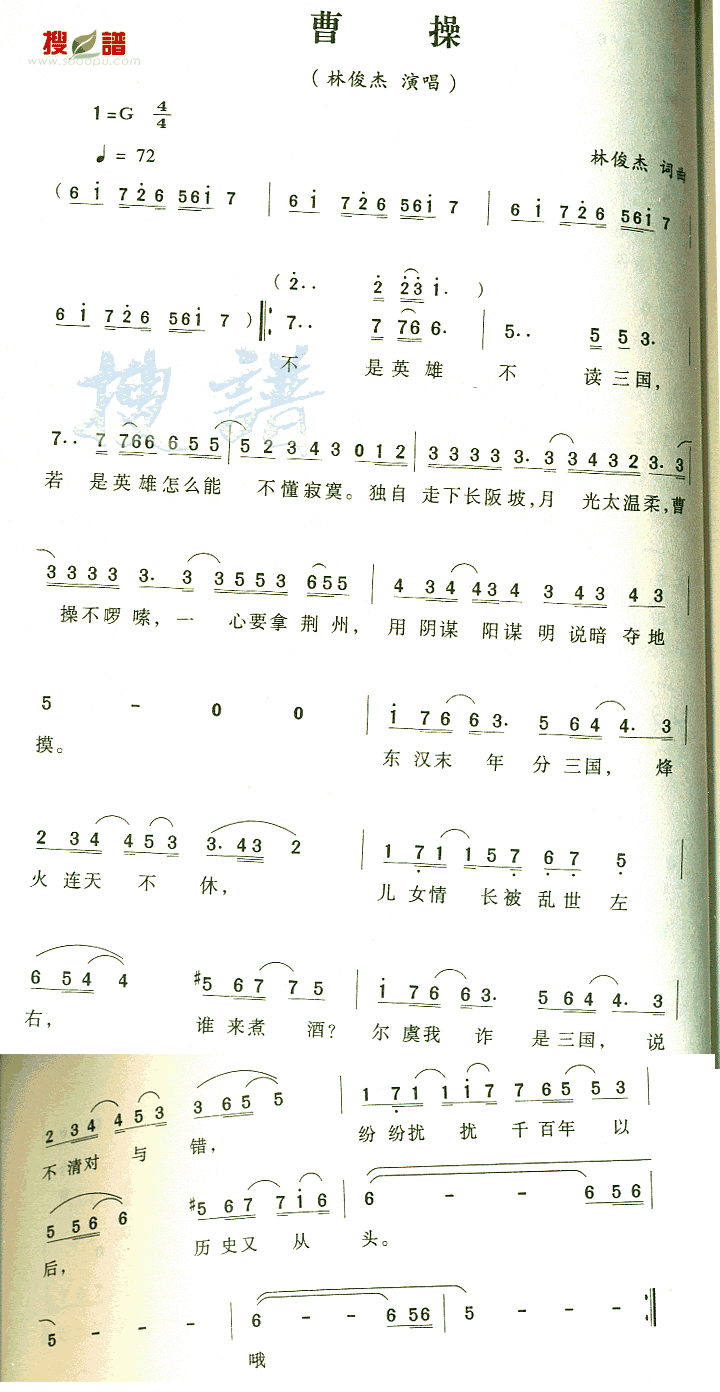 曹 操
搜 譜
www.sooopu.com
（林俊杰 演唱）
1=G 4/4
♩= 72
林俊杰 词曲
(6 i 726 561 7 | 6 i 726 561 7 | 6 i 726 561 7
(2·· 2 23 1· )
6 i 726 561 7 )‖: 7·· 7 766 6· | 5·· 5 5 3·
不 是英 雄 不 读三国，
搜譜
7·· 7 766 6 5 5 | 5 2 3 4 3 0 1 2 | 3 3 3 3 3· 3 3 4 3 2 3· 3
若 是英雄怎么能 不懂寂寞。独自 走下长阪坡，月 光太温柔，曹
3 3 3 3 3· 3 3 5 5 3 655 | 4 34 4 43 4 3 43 4 3
操不啰嗦，一 心要拿荆州，用阴谋 阳谋明说暗夺地
5 - 0 0 | i 76 6 3· 5 64 4· 3
摸。 东汉末 年 分三国， 烽
2 34 453 3·43 2 | 1 71 157 67 5
火连天 不 休， 儿女情 长被乱世 左
6 54 4 #5 67 7 5 | i 76 63· 5 64 4· 3
右， 谁来煮 酒？ 尔虞我 诈 是三国， 说
2 34 453 3 65 5 | 1 71 1i7 765 53
不清对 与 错， 纷纷扰 扰 千百年 以
5 56 6 #5 67 7i6 | 6 - - 6 56
后， 历史又 从 头。
5 - - - | 6 - - 656 | 5 - - - :‖
哦